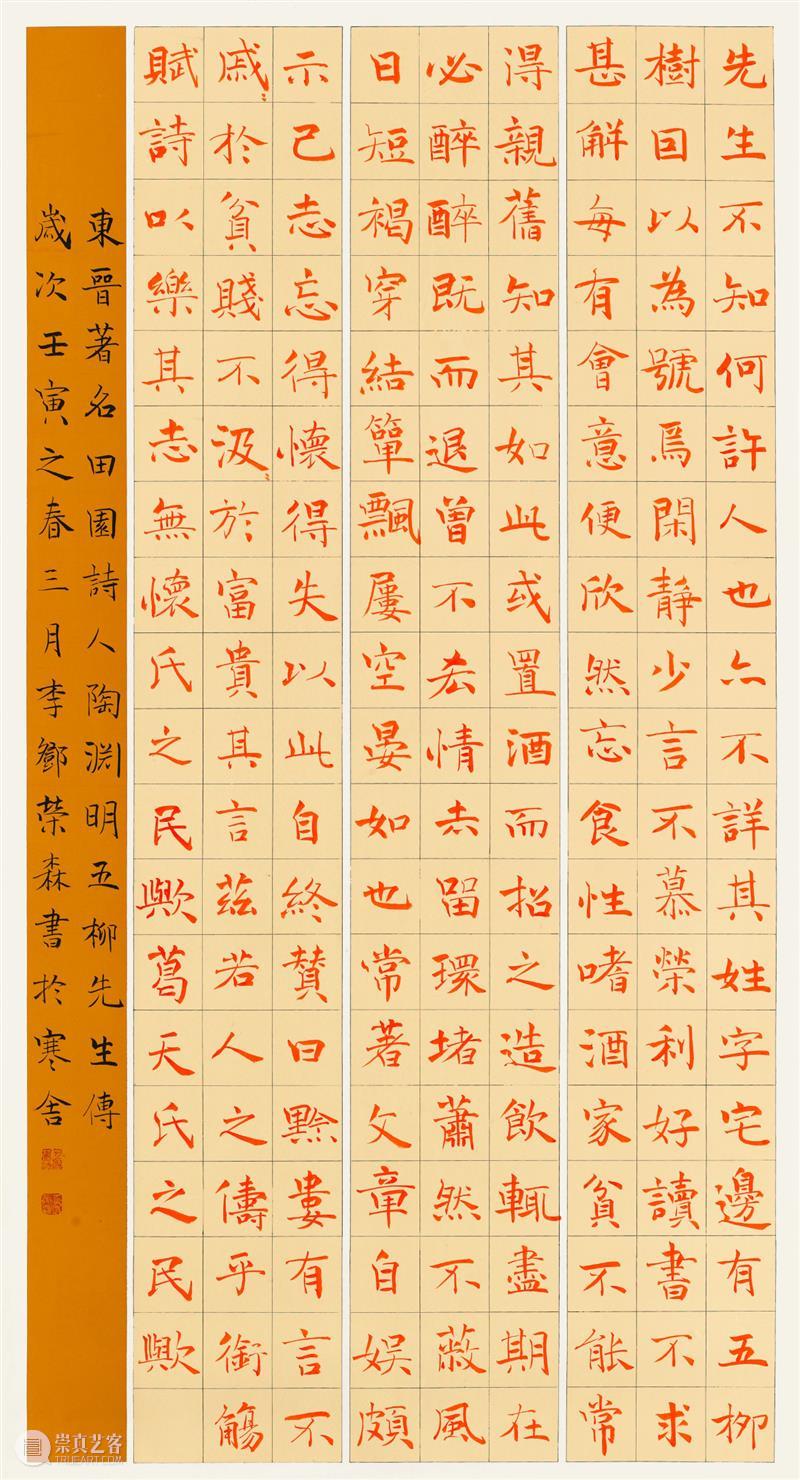 先生不知何許人也亦不詳其姓字宅邊有五柳
樹因以為號焉閑靜少言不慕榮利好讀書不求
甚解每有會意便欣然忘食性嗜酒家貧不能常
得親舊知其如此或置酒而招之造飲輒盡期在
必醉醉既而退曾不吝情去留環堵蕭然不蔽風
日短褐穿結簞飄屢空晏如也常著文章自娛頗
示己志忘得懷得失以此自終贊曰黔婁有言不
戚〻於貧賤不汲〻於富貴其言茲若人之儔乎銜觴
賦詩以樂其志無懷氏之民歟葛天氏之民歟
東晉著名田園詩人陶淵明五柳先生傳
歲次壬寅之春三月李鄧榮森書於寒舍
崇真艺客